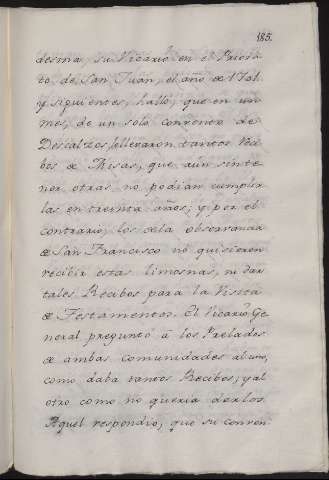 185.
desma, su Vicario en el Priora-
to de San Juan, el año de 1701.
y siguientes, halló, que en un
mes, de un solo convento de
Descalzos, se llevaron tantos Reci-
bos de Misas, que aún sin te-
ner otras no podian cumplir
las en treinta años; y por el
contrario, los de la observancia
de San Francisco no quisieron
recibir estas limosnas, ni dar
tales Recibos para la Visita
de Testamentos. El Vicario Ge-
neral preguntó à los Prelados
de ambas comunidades al uno,
como daba tantos Recibos; y al
otro como no queria darlos.
Aquel respondió, que su conven-